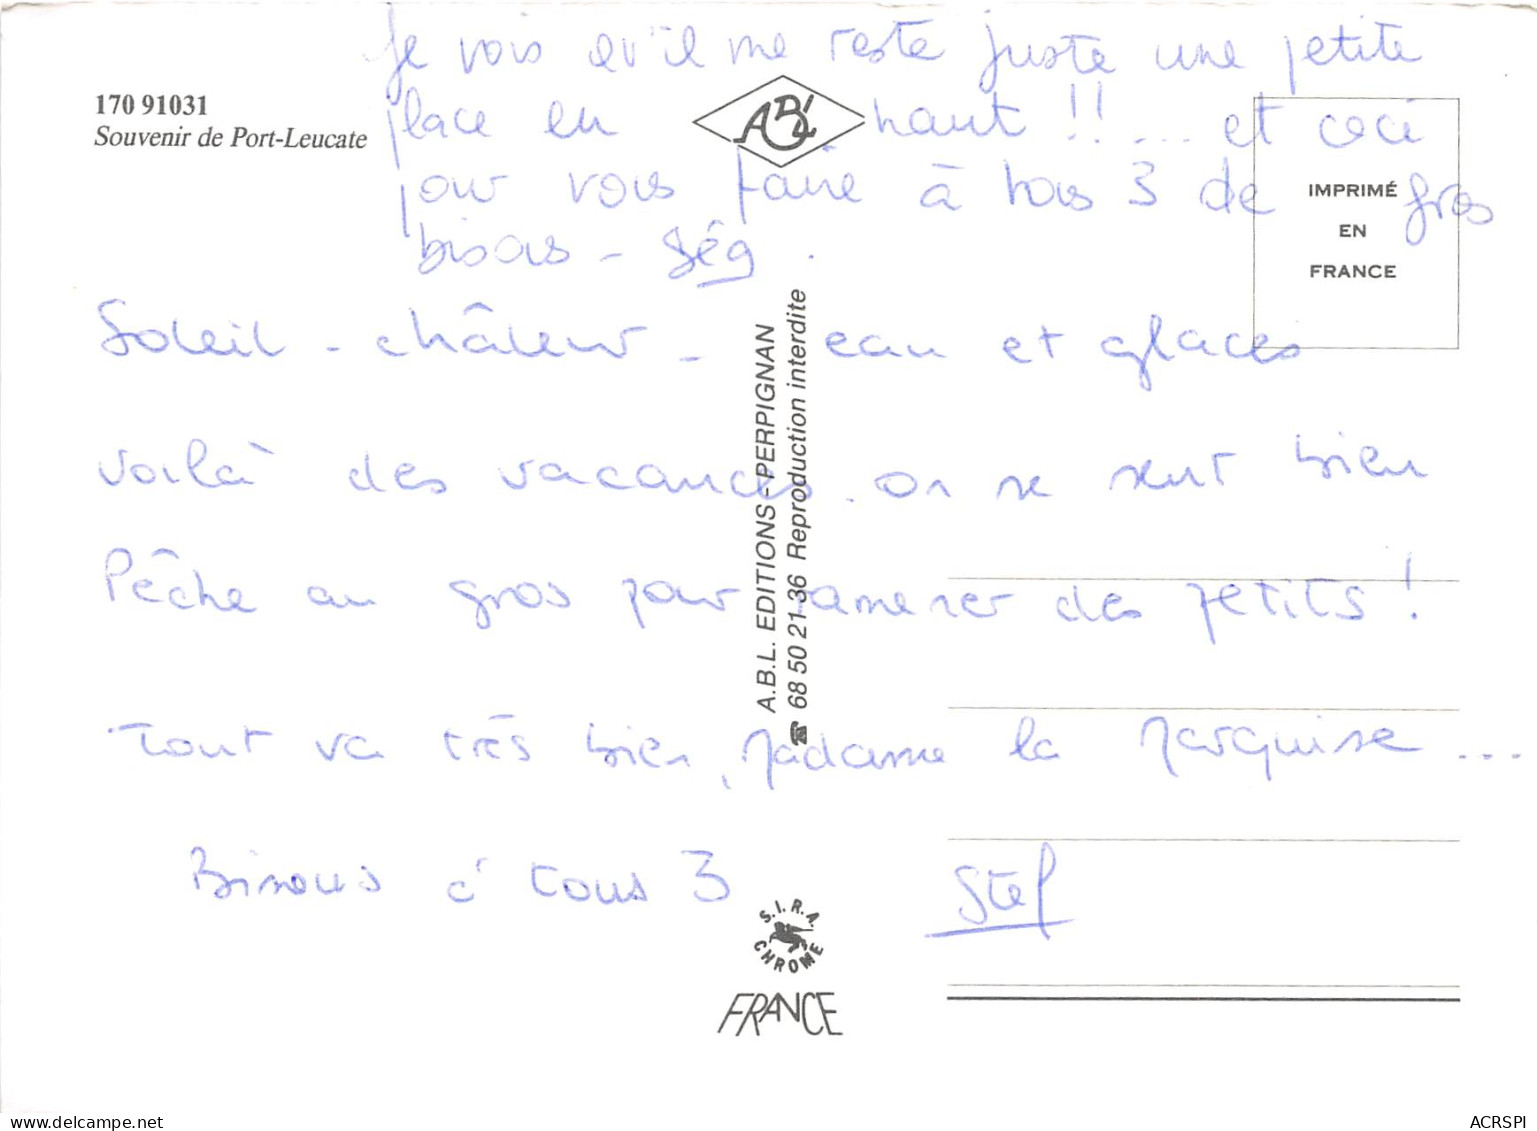 Je vois qu'il me reste juste une petite
place en haut !! ... et ceci
pour vous faire à tous 3 de gros
bisous - Ség.
170 91031
Souvenir de Port-Leucate
ABL
IMPRIMÉ
EN
FRANCE
Soleil - châleur - eau et glaces
voilà des vacances. on se sent bien
Pêche au gros pour ramener des petits !
Tout va très bien, Madame la Marquise ...
Bisous à tous 3 Stef
A.B.L. EDITIONS - PERPIGNAN
☎ 68 50 21 36 Reproduction interdite
S.I.R.A.
CHROME
FRANCE
delcampe.net
ACRSPI